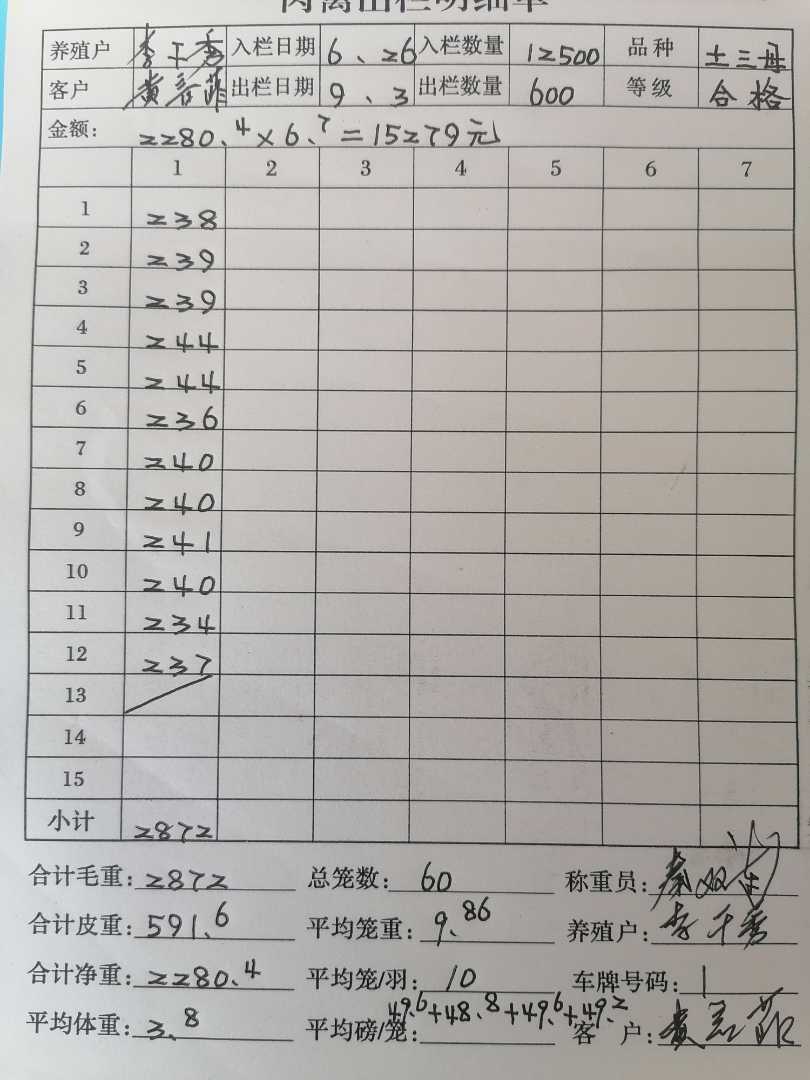 肉禽出栏明细单
养殖户 李千秀 入栏日期 6、26 入栏数量 12500 品种 土三母
客户 出栏日期 9、3 出栏数量 600 等级 合格
金额: 2280.4×6.7=15279元
1 2 3 4 5 6 7
1 238
2 239
3 239
4 244
5 244
6 236
7 240
8 240
9 241
10 240
11 234
12 237
13
14
15
小计 2872
合计毛重: 2872 总笼数: 60 称重员:
合计皮重: 591.6 平均笼重: 9.86 养殖户: 李千秀
合计净重: 2280.4 平均笼/羽: 10 车牌号码: 1
平均体重: 3.8 平均磅/笼: 49.6+48.8+49.6+49.2 客 户: